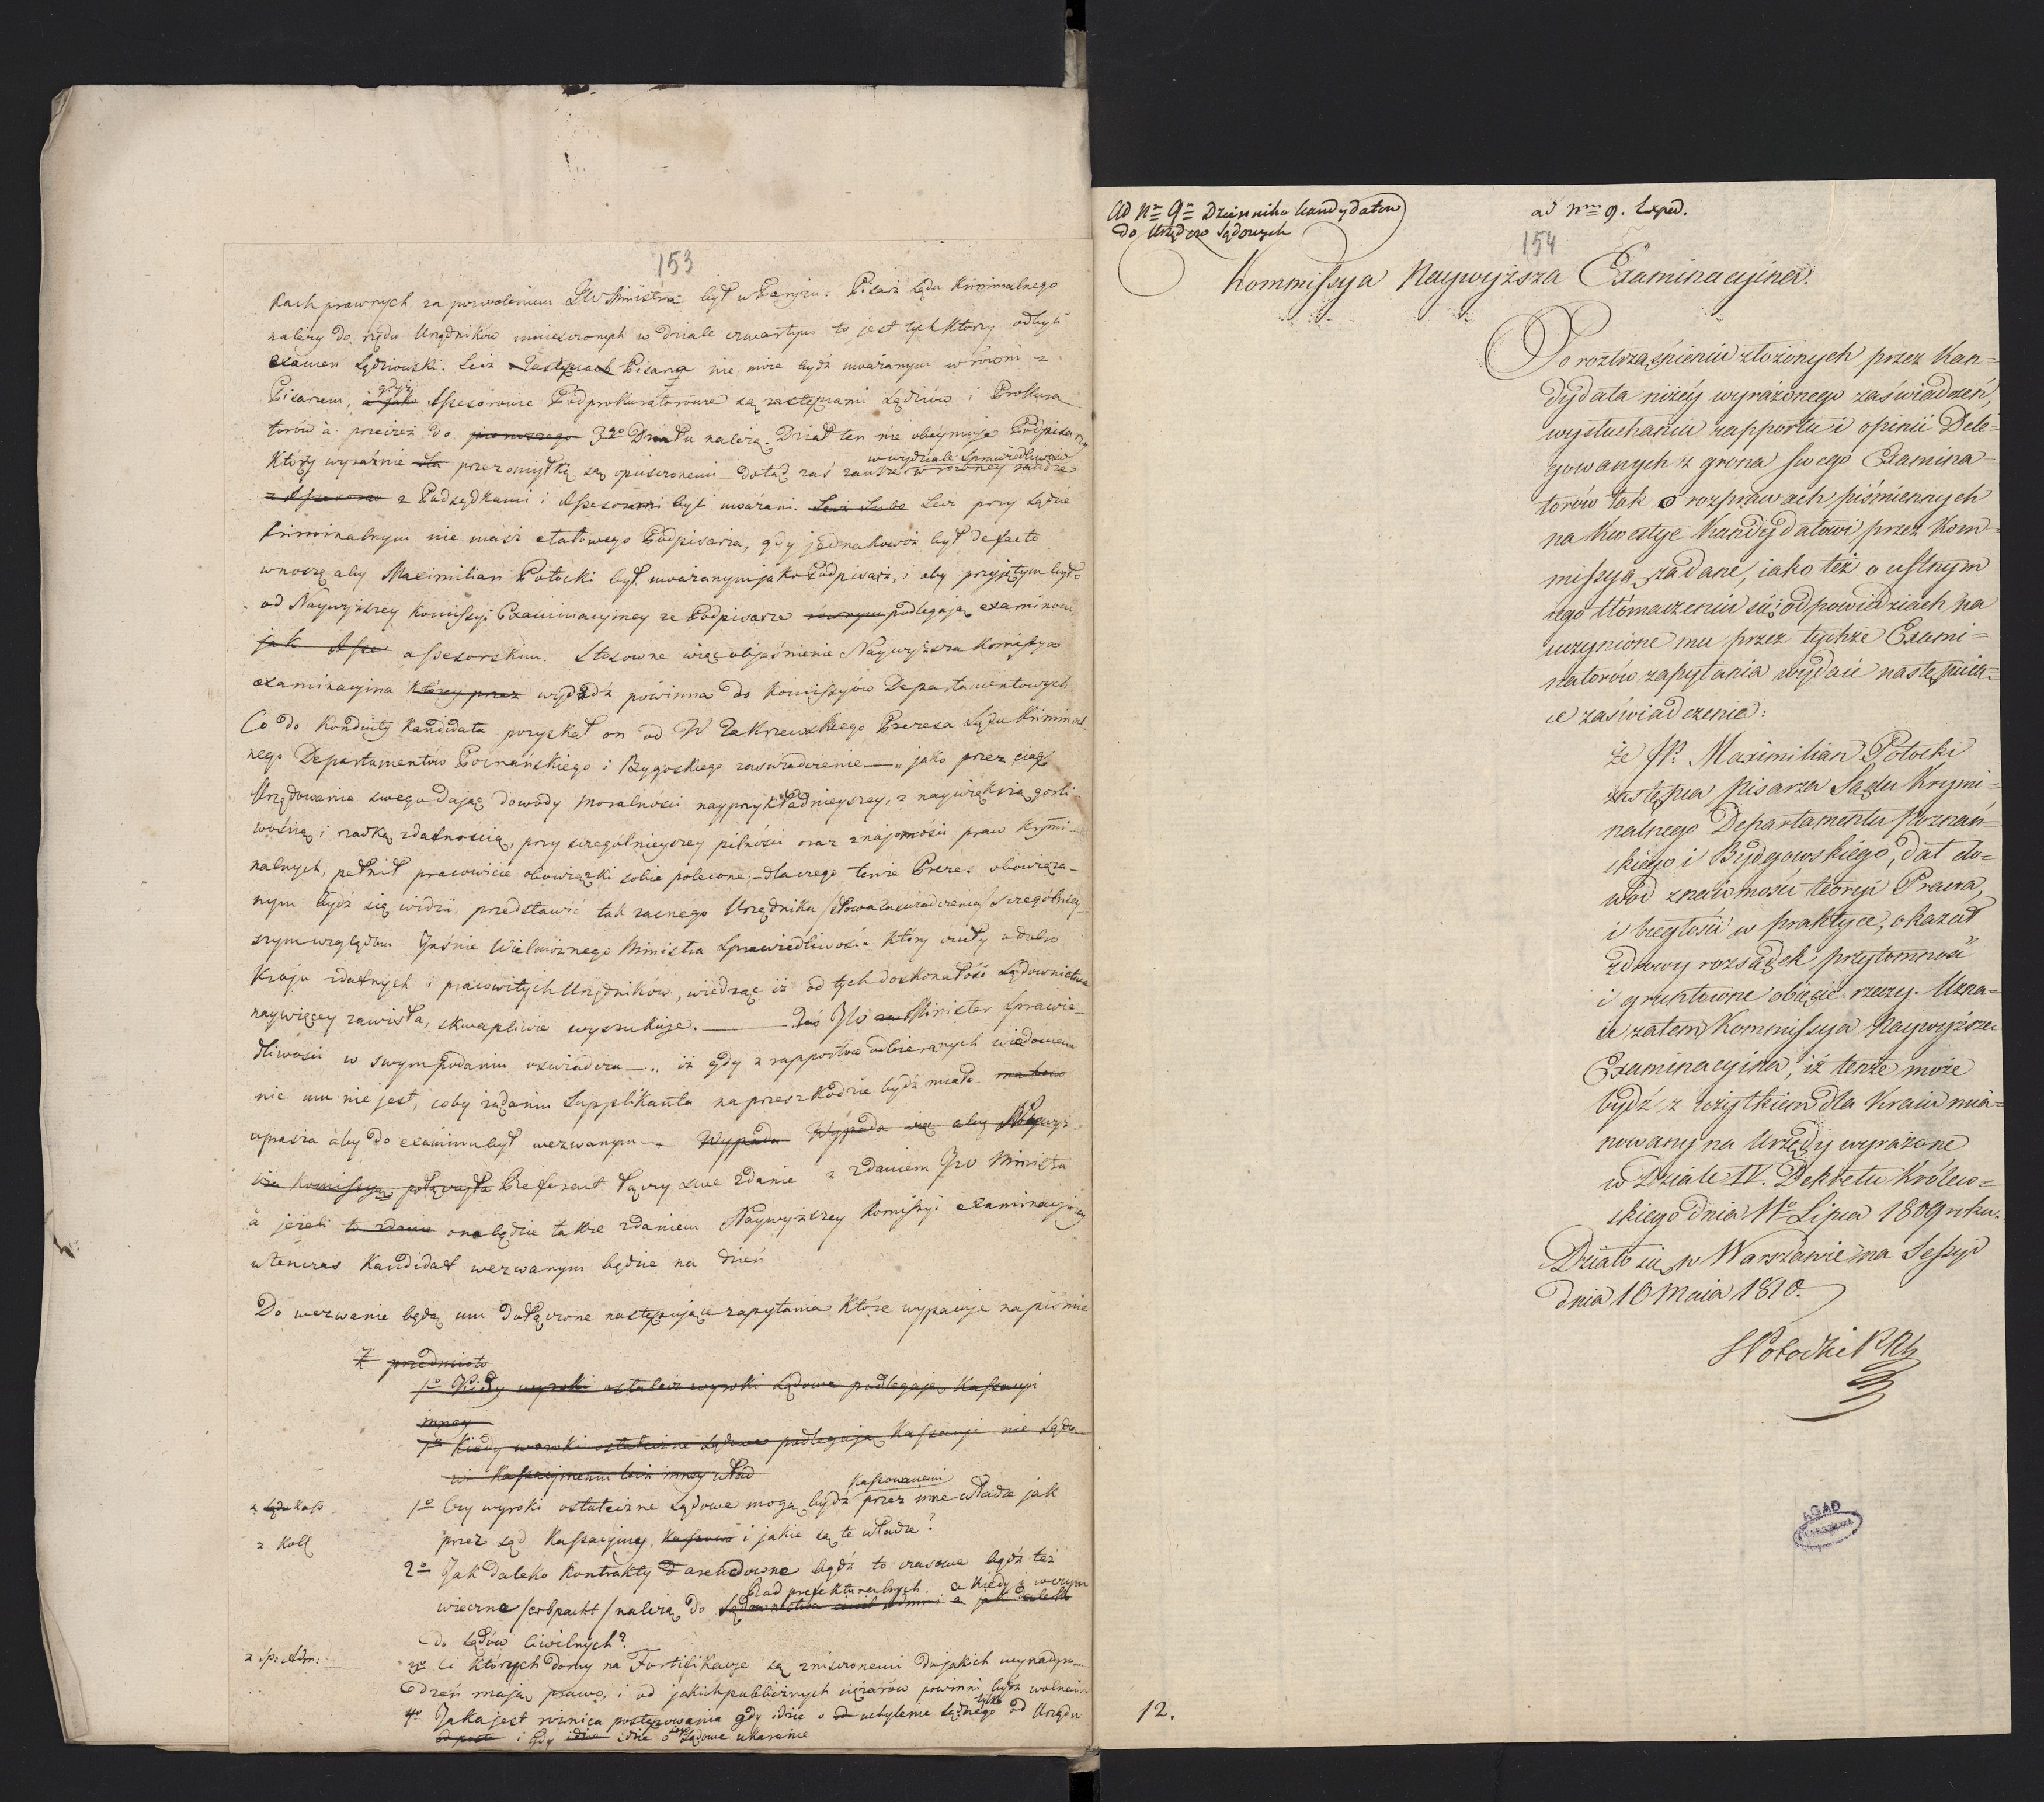 153
kach prawnych za pozwoleniem JW Ministra był w Paryżu. Pisarz Sądu Kriminalnego
należy do rzędu Urzędników umieszczonych w dziale czwartym to jest tych którzy odbyli
examen Sędziowski. Lecz Zastępca Pisarza nie może bydź uważanym w równi z
Pisarzem, gdyż Assesorowie Podprokuratorowie są zastępcami Sędziów i Prokura
torów a przecież do pierwszego 3go Działu należą. Dział ten nie obeymuje Podpisarzy
którzy wyraźnie dla przez omyłkę są opuszczonemi dotąd zaś zawsze w równey randze
w wydziale Sprawiedliwości
z Assesorami z Podsędkami i Assesorami byli uważani. Lecz Lubo Lecz przy Sądzie
kriminalnym nie masz etatowego Podpisarza, gdy jednakowoż był de facto
wnoszę aby Maximilian Potocki był uważanym jako Podpisarz, i aby przyjętym było
od Naywyższey Komissyi Examinacyjney że Podpisarze równym podlegają examinowi
jak Asse assesorskim. Stosowne więc objaśnienie Naywyższa Komissya
examinacyjna którey przez wydadź powinna do Komissyów Departamentowych.
Co do Konduity Kandidata pozyskał on od W Zakrzewskiego Prezesa Sądu Kriminal
nego Departamentów Poznańskiego i Bygoskiego zaświadczenie — „jako przez ciąg
Urzędowania swego dając dowody moralności nayprzykładnieyszey, z naywiększą gorli
wością i rzadką zdatnością, przy szczególnieyszey pilności oraz znajomości praw Krymi-
nalnych, pełnił pracowicie obowiązki sobie polecone, — dlaczego tenże Prezes obowiąza-
nym bydź się widzi, przedstawić tak zacnego Urzędnika /słowa zaświadczenia/ szczególniey-
szym względom Jaśnie Wielmożnego Ministra Sprawiedliwości który czuły o dobro
Kraju zdatnych i pracowitych Urzędników, wiedząc iż od tych doskonałość Sądownictwa
naywięcey zawisła, skwapliwie wyszukuje. — Zaś JW Minister Sprawie-
dliwości w swym podaniu oświadcza — „iż gdy z rapportów odbieranych wiadomem
nic mu nie jest, coby żądaniu Supplikanta na przeszkodzie bydź miało
uprasza áby do examinu był wezwanym — „ Wypada Wypada więc aby Naywyż-
sza Komissya połączyła Referent łączy swe zdanie z zdaniem JW Ministra
a jeżeli to zdanie one będzie także zdaniem Naywyższey Komissyi examinacyjney
wtenczas Kandidat wezwanym będzie na dzień
Do wezwania będą mu dołączone następujące zapytania które wypracuje na piśmie
Z przedmiotu
1o Kiedy wyroki ostateczne wyroki Sądowe podlegają Kassacyi
inney
1o Kiedy wyroki ostateczne Sądowe podlegają Kassacyi nie Sądo-
wi Kassacyjnemu lecz inney wład
z Sądu Kass 1o Czy wyroki ostateczne Sądowe mogą bydź kassowanemi przez inne władze jak
z Koll przez sąd Kassacyjny, Kassowa i jakie są te władze?
2o Jak daleko kontrakty D arendowne bądź to czasowe bądź też
Rad prefekturalnych. a kiedy i w czym
wieczne /erbpacht/ należą do Sądownictwa
do Sądów Ciwilnych?
z Sp: Adm: 3o Ci których domy na Fortifikacye są zniszczonemi do jakich wynadgro-
dzeń mają prawo, i od jakich publicznych ciężarów powinni bydź wolnemi
4o Jaka jest różnica postępowania gdy idzie o uchylenie Sędziego tylko od Urzędu
od poste i gdy idzie idzie o jego Sądowe ukaranie
Ad No 9o Dziennika Kandydatów
do Urzędów Sądowych
ad Nrm 9. Exped.
154
Kommissya Naywyższa Examinacyina.
Po roztrząśnieniu złożonych przez Kan=
dydata niżéy wyrażonego zaświadczeń,
wysłuchaniu rapportu i opinii Dele-
gowanych z grona swego Examina-
torów tak o rozprawach piśmiennych
na kwestye Kandydatowi przez Kom-
missyą zadane, iako też o ustnym
iego tłómaczeniu się i odpowiedziach na
uczynione mu przez tychże Exami=
natorów zapytania wydaie następuią=
ce zaświadczenie:
że JP. Maximilian Potocki
zastępca pisarza Sądu Krymi=
nalnego Departamentu Poznań=
skiego i Bydgowskiego, dał do=
wód znaiomości teoryi Prawa,
i biegłości w praktyce, okazał
zdrowy rozsądek przytomność
i gruntowne obięcie rzeczy. Uzna=
ie zatem Kommissya Naywyższa
Examinacyina, iż tenże może
bydź z użytkiem dla Kraiu mia=
nowany na Urzędy wyrażone
w Dziale IV. Dekretu Królew=
skiego dnia 11o Lipca 1809 roku.
Działo się w Warszawie na Sessyi
dnia 10 Maia 1810.
S Potocki
AGAD
12.